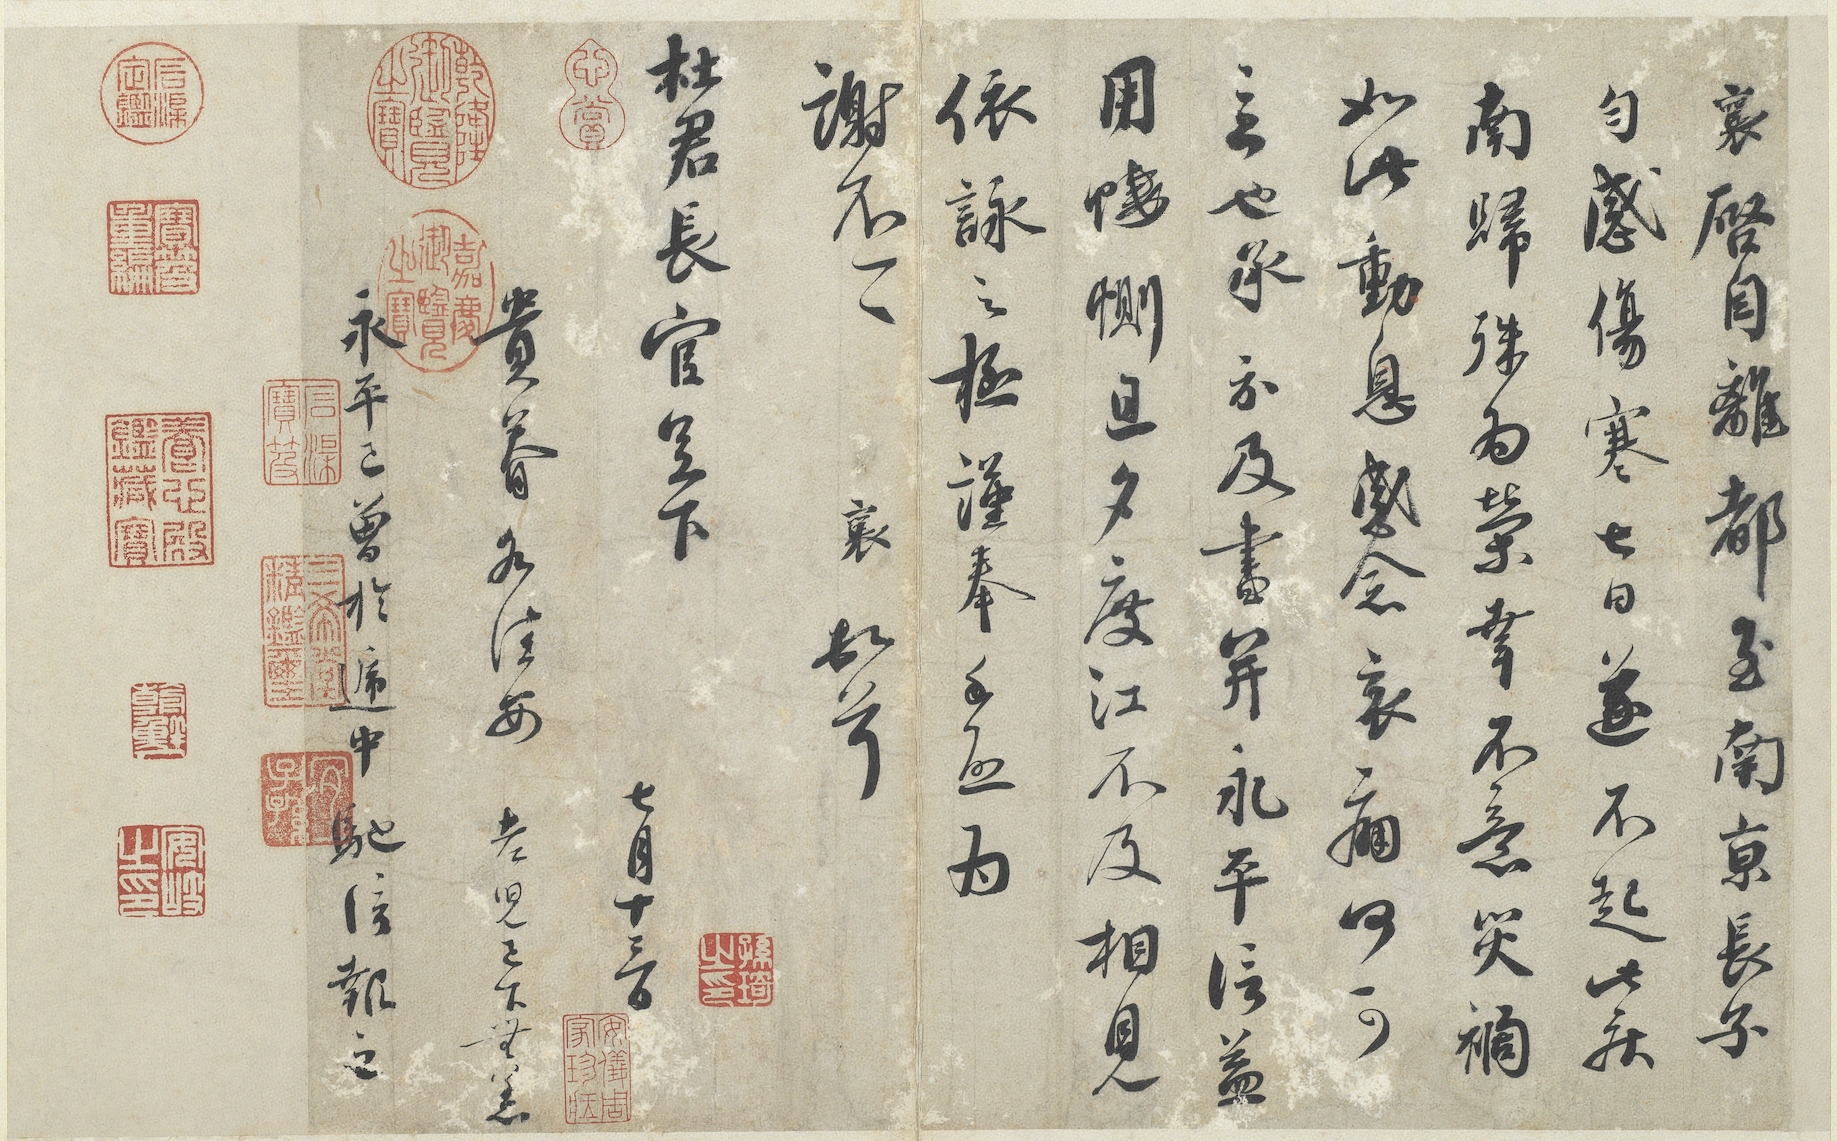 襄啓自離都至南京長子
勻感傷寒七日遂不起此疾
南歸殊為榮幸不意災禍
如此動息感念哀痛何可
言也承示及書并永平信益
用悽惻旦夕度江不及相見
依詠之極謹奉手啟為
謝不一一 襄頓首
杜君長官足下 七月十三日
貴眷各佳安 老兒已下無恙
永平已曾於遞中馳信報之
乾隆御覽之寶
嘉慶御覽之寶
石渠定鑑
寶笈重編
石渠寶笈
養心殿鑑藏寶
三希堂精鑑璽
宜子孫
安岐之印
安儀周家珍藏
孫琦之印